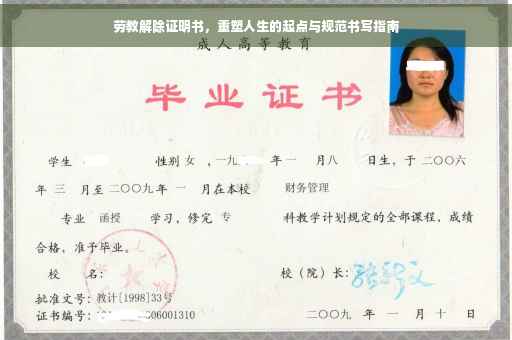 劳教解除证明书，重塑人生的起点与规范书写指南
成人高等教育
毕业证书
学生 性别 女 ，一九 年 一 月 八 日生，于 二〇〇六
年 三 月至 二〇〇九 年 一 月在本校 财务管理
专业 函授 学习，修完 专 科教学计划规定的全部课程，成绩
合格，准予毕业。
校 名： 校（院）长：
批准文号：教计[1998]33号
证书编号： 06001310 二〇〇九 年 一 月 十 日